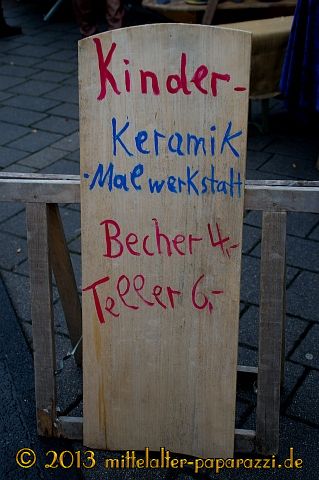 Kinder-
Keramik
-Malwerkstatt
Becher 4,-
Teller 6,-
© 2013 mittelalter-paparazzi.de